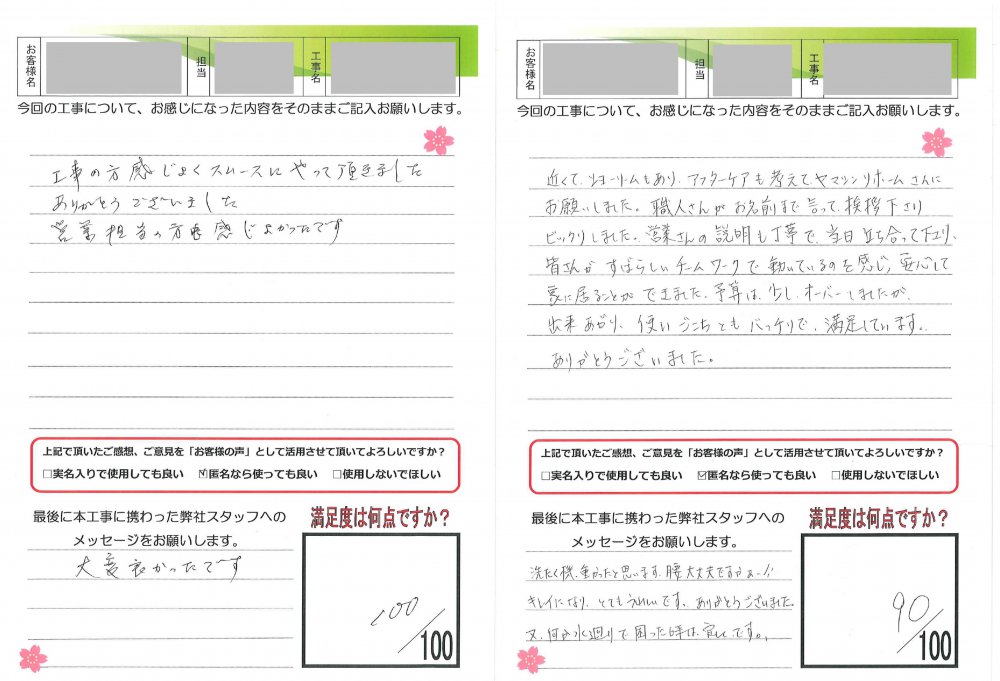 お客様名
担当
工事名
今回の工事について、お感じになった内容をそのままご記入お願いします。
工事の方感じよくスムースにやって頂きました
ありがとうございました
営業担当の方も感じよかったです
上記で頂いたご感想、ご意見を「お客様の声」として活用させて頂いてよろしいですか？
□実名入りで使用しても良い ☑匿名なら使っても良い □使用しないでほしい
最後に本工事に携わった弊社スタッフへの
メッセージをお願いします。
大変良かったです
満足度は何点ですか？
100/100
お客様名
担当
工事名
今回の工事について、お感じになった内容をそのままご記入お願いします。
近くて、ショールームもあり、アフターケアも考えてヤマシンリホームさんに
お願いしました。職人さんがお名前まで言って、挨拶下さり
ビックリしました。営業さんの説明も丁寧で、当日立ち合って下さり、
皆さんがすばらしいチームワークで動いているのを感じ、安心して
家に居ることができました。予算は、少し、オーバーしましたが、
出来あがり、使いごこちともバッチリで、満足しています。
ありがとうございました。
上記で頂いたご感想、ご意見を「お客様の声」として活用させて頂いてよろしいですか？
□実名入りで使用しても良い ☑匿名なら使っても良い □使用しないでほしい
最後に本工事に携わった弊社スタッフへの
メッセージをお願いします。
洗たく機、重かったと思います。腰大丈夫ですかぁー!!
キレイになり、とてもうれしいです。ありがとうございました。
又、何か水廻りで困った時は、宜しくです。
満足度は何点ですか？
90/100